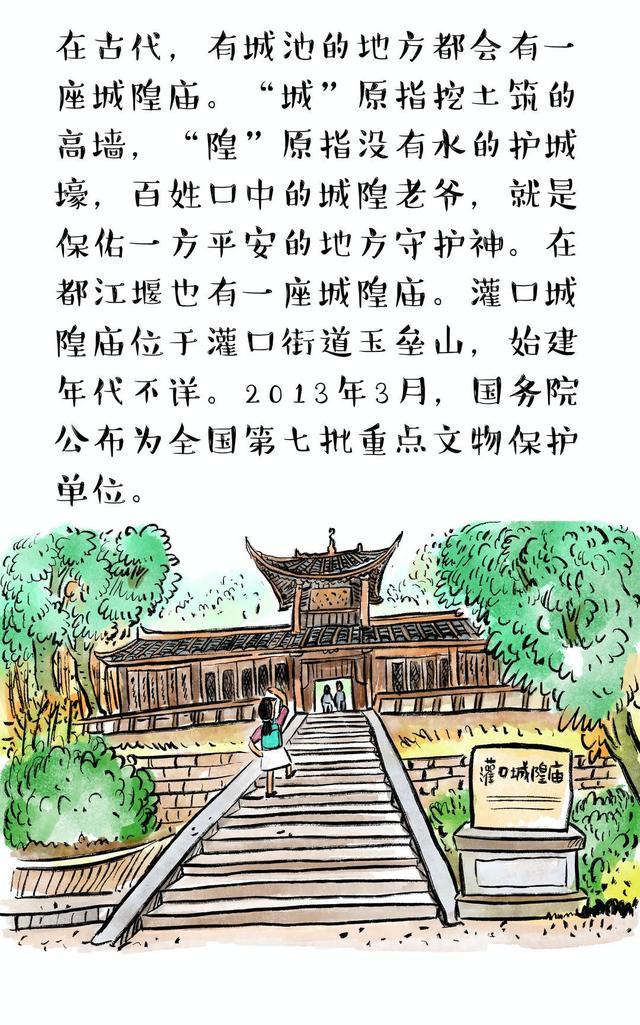 在古代，有城池的地方都会有一
座城隍庙。“城”原指挖土筑的
高墙，“隍”原指没有水的护城
壕，百姓口中的城隍老爷，就是
保佑一方平安的地方守护神。在
都江堰也有一座城隍庙。灌口城
隍庙位于灌口街道玉垒山，始建
年代不详。2013年3月，国务院
公布为全国第七批重点文物保护
单位。
灌口城隍庙